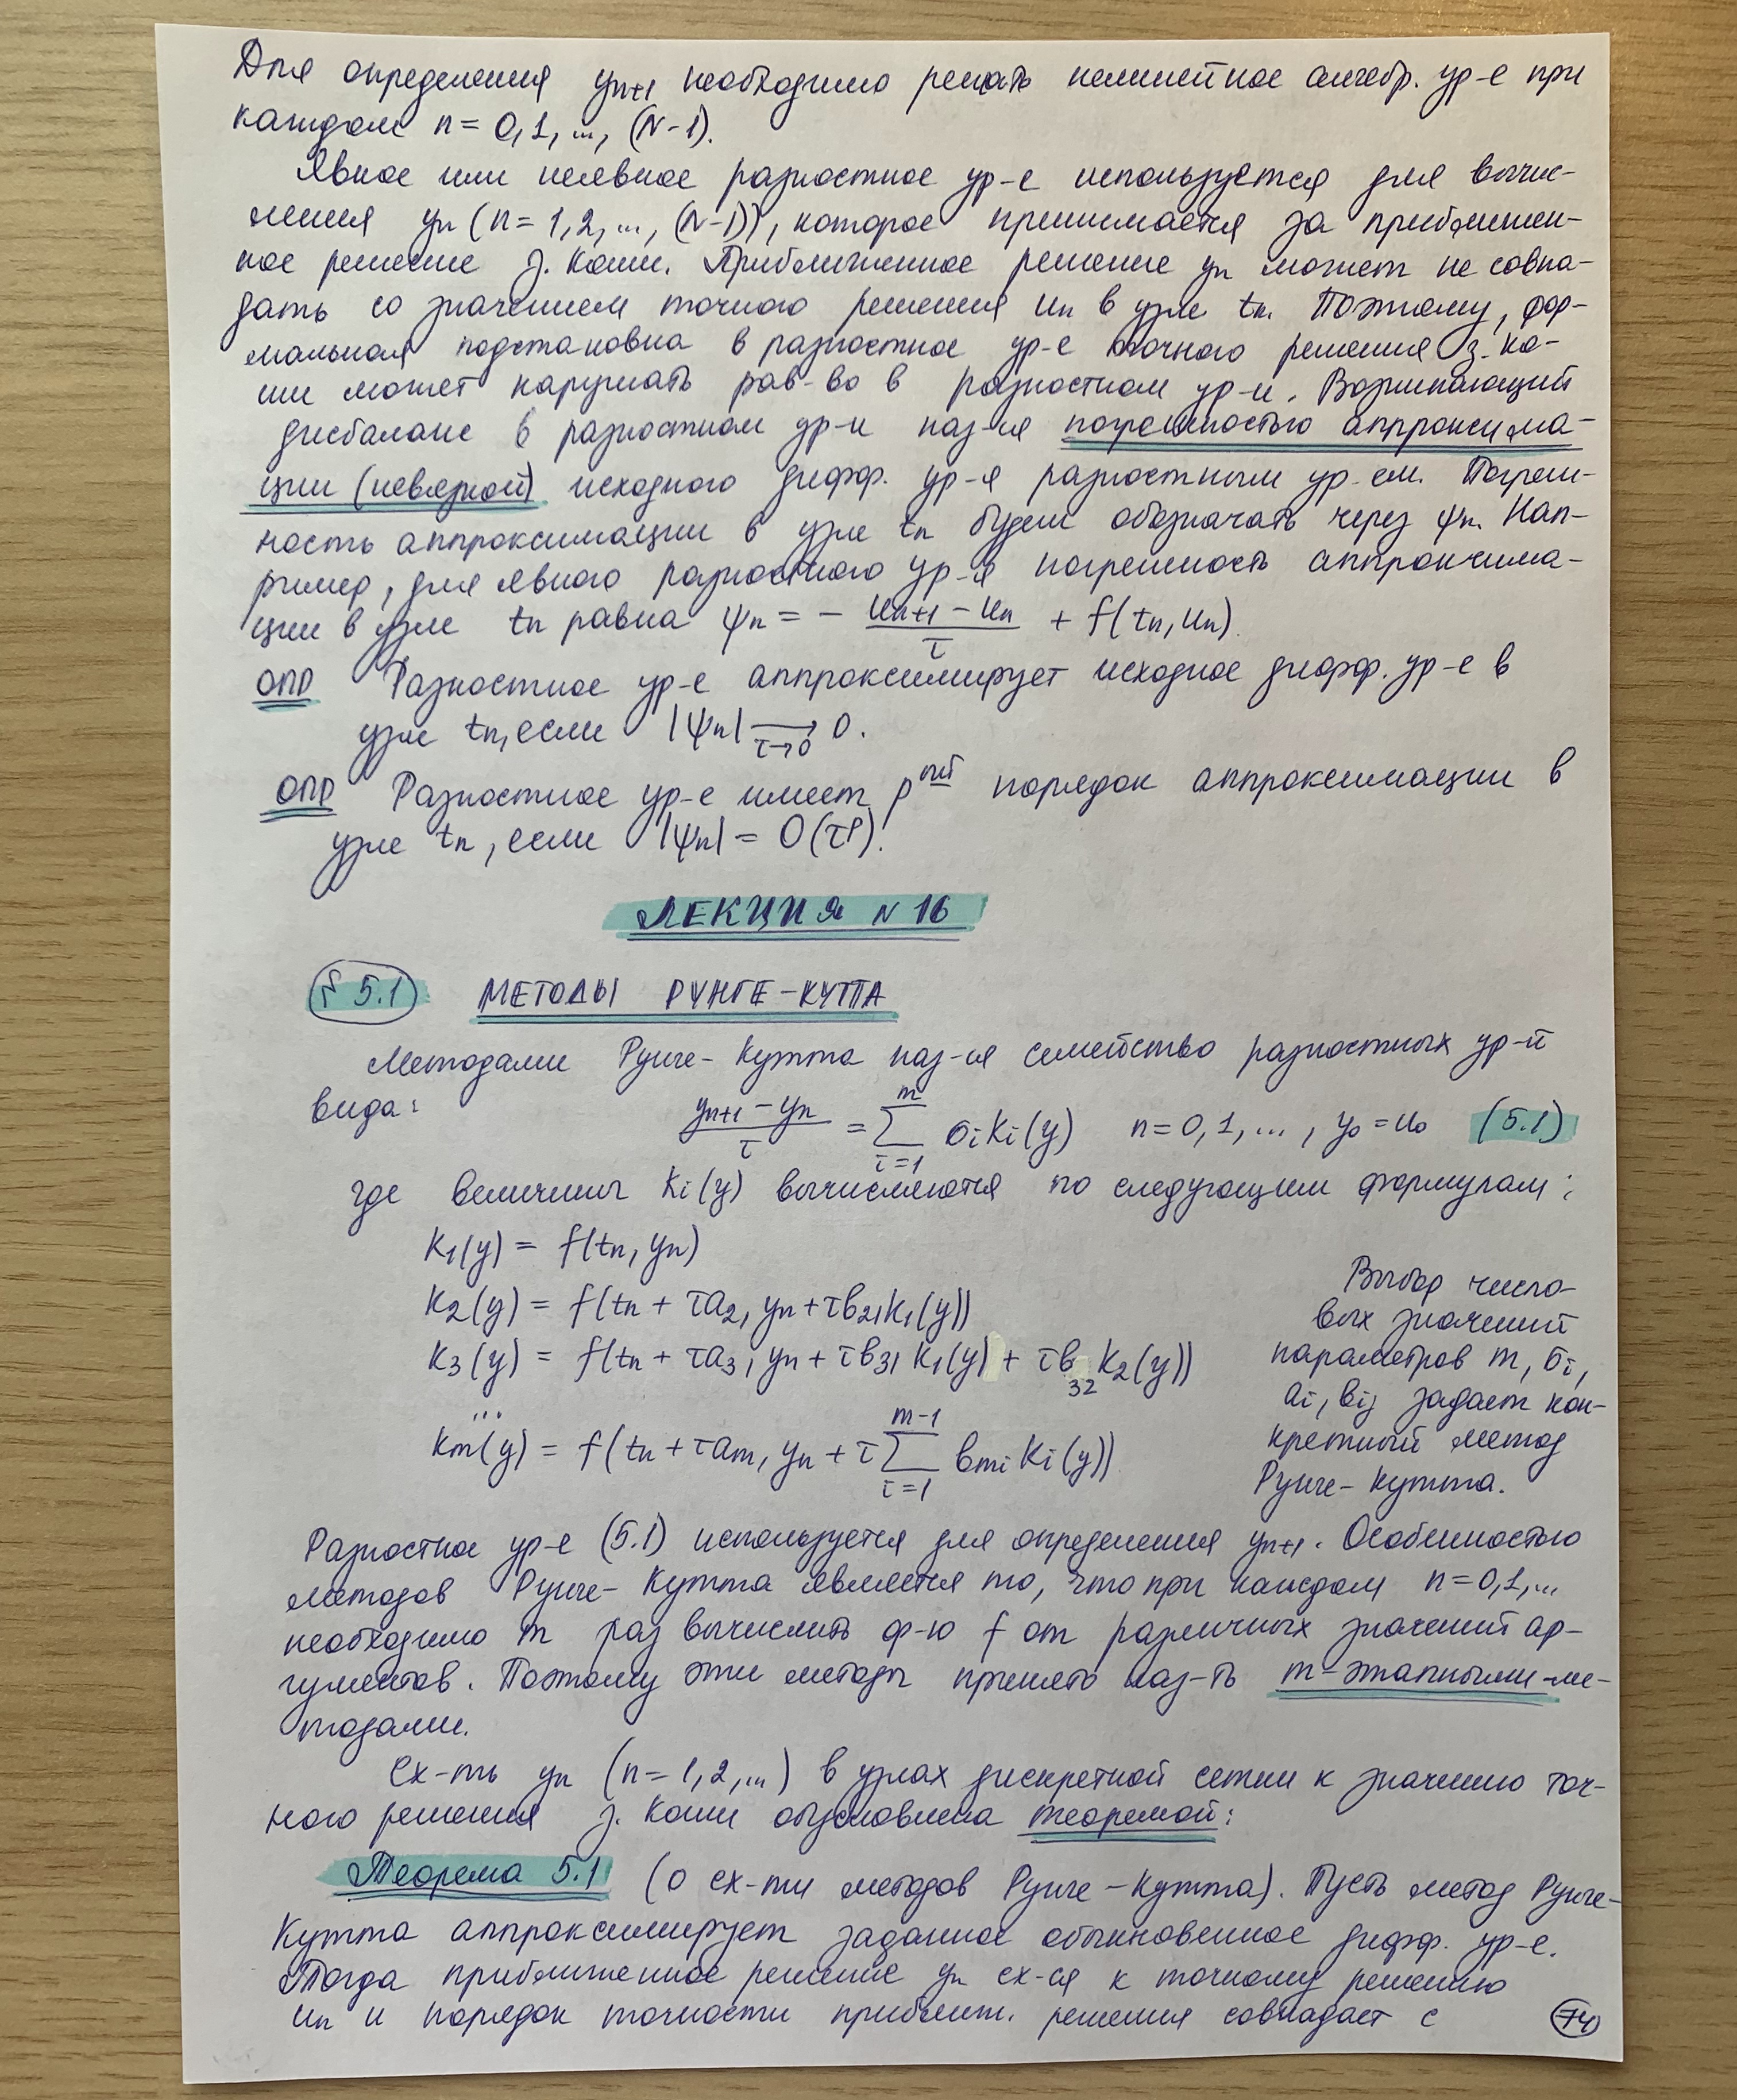 Для определения yn+1 необходимо решать нелинейное алгебр. ур-е при
каждом n = 0,1,..., (N-1).
Явное или неявное разностное ур-е используется для вычис-
ления yn (n = 1,2,..., (N-1)), которое принимается за приближен-
ное решение з. Коши. Приближенное решение yn может не совпа-
дать со значением точного решения un в узле tn. Поэтому, фор-
мальная подстановка в разностное ур-е точного решения з. Ко-
ши может нарушать рав-во в разностном ур-и. Возникающий
дисбаланс в разностном ур-и наз-ся погрешностью аппроксима-
ции (невязкой) исходного дифф. ур-я разностным ур-ем. Погреш-
ность аппроксимации в узле tn будем обозначать через ψn. Нап-
ример, для явного разностного ур-я погрешность аппроксима-
ции в узле tn равна ψn = - (un+1 - un)/τ + f(tn, un).
ОПР Разностное ур-е аппроксимирует исходное дифф. ур-е в
узле tn, если |ψn| → 0. τ→0
ОПР Разностное ур-е имеет p^ый порядок аппроксимации в
узле tn, если |ψn| = O(τ^p).
ЛЕКЦИЯ N 16
§ 5.1 МЕТОДЫ РУНГЕ-КУТТА
Методами Рунге-Кутта наз-ся семейство разностных ур-й
вида: (yn+1 - yn)/τ = Σ_{i=1}^{m} σi Ki(y) n = 0,1,..., y0 = u0 (5.1)
где величины Ki(y) вычисляются по следующим формулам:
K1(y) = f(tn, yn)
K2(y) = f(tn + τa2, yn + τb21 K1(y))
K3(y) = f(tn + τa3, yn + τb31 K1(y) + τb32 K2(y))
...
Km(y) = f(tn + τam, yn + τ Σ_{i=1}^{m-1} bmi Ki(y))
Выбор число-
вых значений
параметров m, σi,
ai, bij задает кон-
кретный метод
Рунге-Кутта.
Разностное ур-е (5.1) используется для определения yn+1. Особенностью
методов Рунге-Кутта является то, что при каждом n = 0,1,...
необходимо m раз вычислить ф-ю f от различных значений ар-
гументов. Поэтому эти методы принято наз-ть m-этапными ме-
тодами.
Сх-ть yn (n = 1,2,...) в узлах дискретной сетки к значению точ-
ного решения з. Коши обусловлена теоремой:
Теорема 5.1 (о сх-ти методов Рунге-Кутта). Пусть метод Рунге-
Кутта аппроксимирует заданное обыкновенное дифф. ур-е.
Тогда приближенное решение yn сх-ся к точному решению
un и порядок точности приближ. решения совпадает с
74